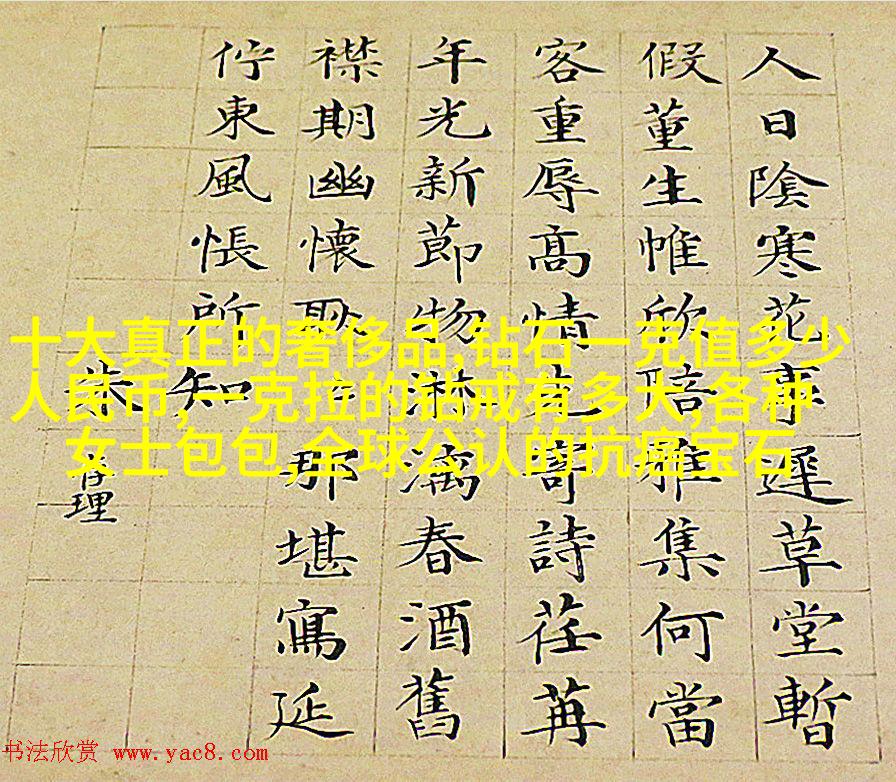 人日陰寒花事遲草堂暫
假董生帷欣陪雅集何當
客重辱高情先寄詩荏苒
年光新節物淋漓春酒舊
襟期幽懷耿那堪寫延
佇東風悵所知
朱存理
十大真正的奢侈品,钻石一克值多少
人民币,一克拉的钻戒有多大,各种
女士包包,全球公认的抗癌宝石
书法欣赏 www.yac8.com